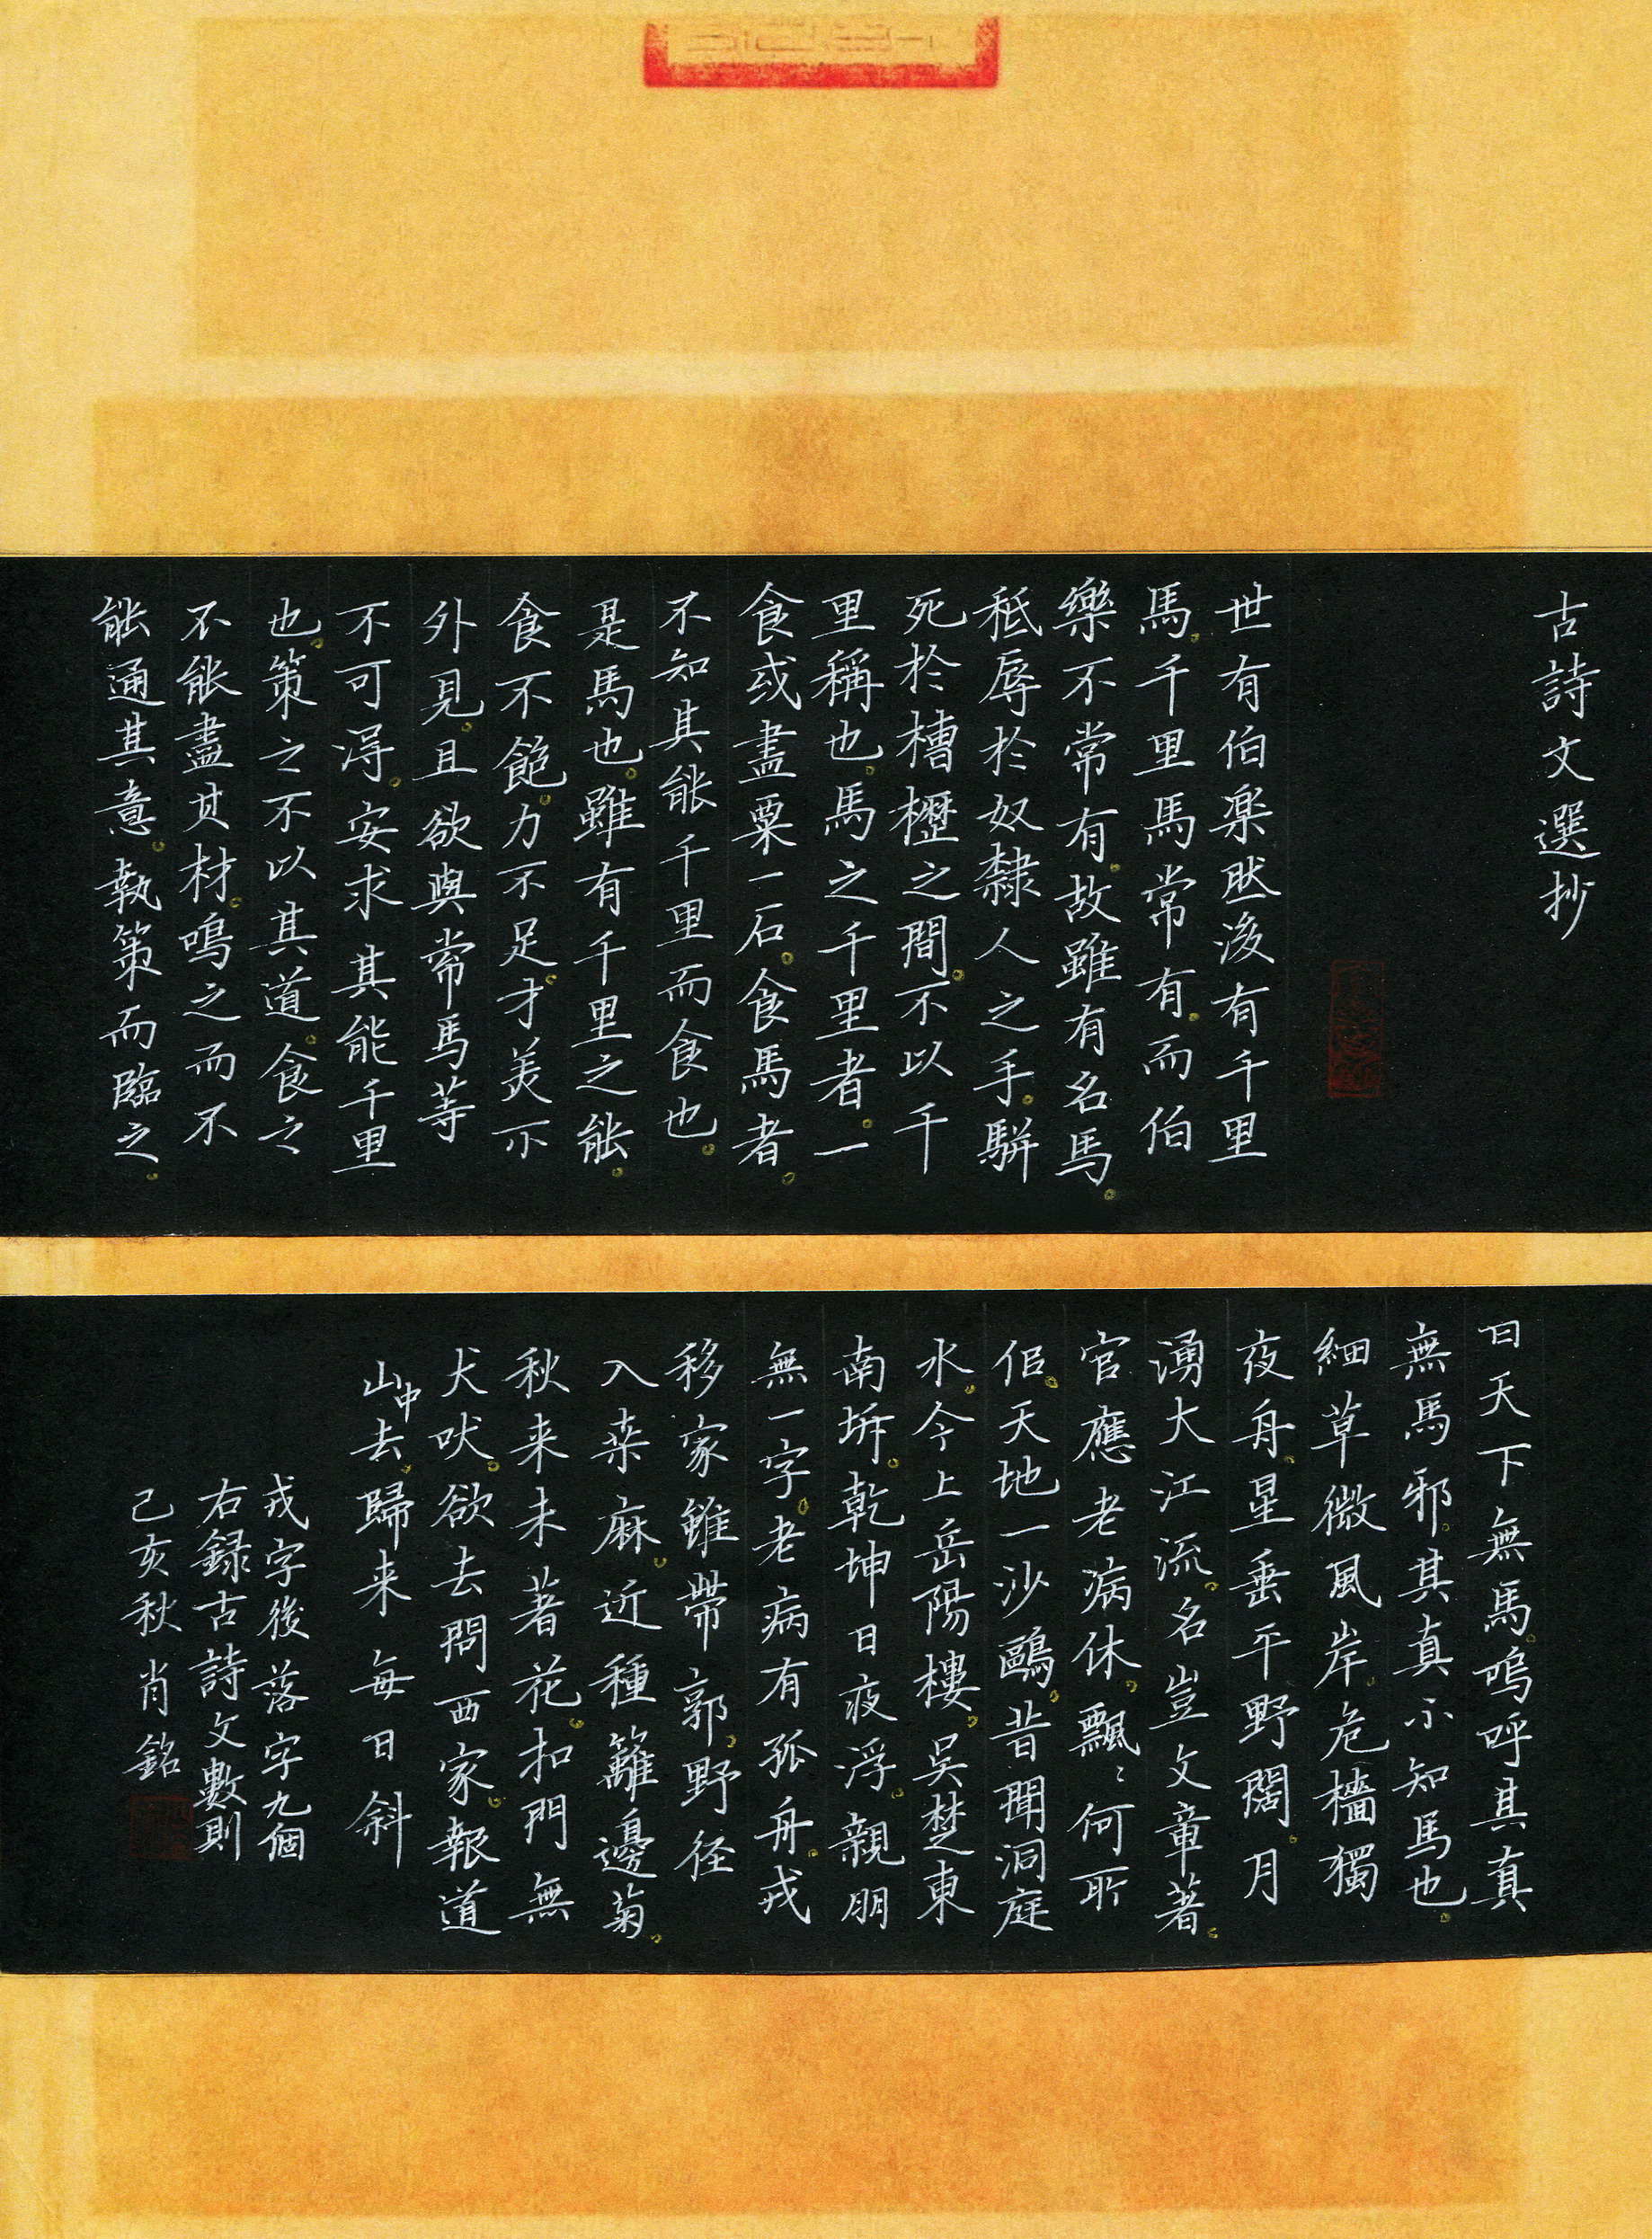 古詩文選抄
世有伯楽然後有千里
馬千里馬常有而伯
樂不常有故雖有名馬
秪辱於奴隸人之手駢
死於槽櫪之間不以千
里稱也馬之千里者一
食或盡粟一石食馬者
不知其能千里而食也
是馬也雖有千里之能
食不飽力不足才美不
外見且欲與常馬等
不可得安求其能千里
也策之不以其道食之
不能盡其材鳴之而不
能通其意執策而臨之
曰天下無馬嗚呼其真
無馬邪其真不知馬也
細草微風岸危檣獨
夜舟星垂平野闊月
湧大江流名豈文章著
官應老病休飄〻何所
佀天地一沙鷗昔聞洞庭
水今上岳陽樓吳楚東
南坼乾坤日夜浮親朋
無一字老病有孤舟戎
移家雖帶郭野径
入桒麻近種籬邊菊
秋来未著花扣門無
犬吠欲去問西家報道
山中去歸来每日斜
戎字後落字九個
右録古詩文數則
己亥秋肖銘